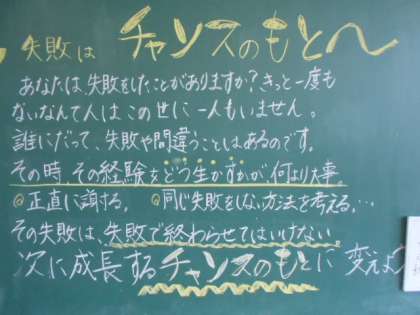 失敗は チャンスのもと〜
あなたは、失敗をしたことがありますか？きっと一度も
ないなんて人はこの世に一人もいません。
誰にだって、失敗や間違うことはあるのです。
その時、その経験をどう生かすかが、何より大事。
◎正直に謝る。 ◎同じ失敗をしない方法を考える。…
その失敗は、失敗で終わらせてはいけない。
次に成長するチャンスのもとに 変えよう